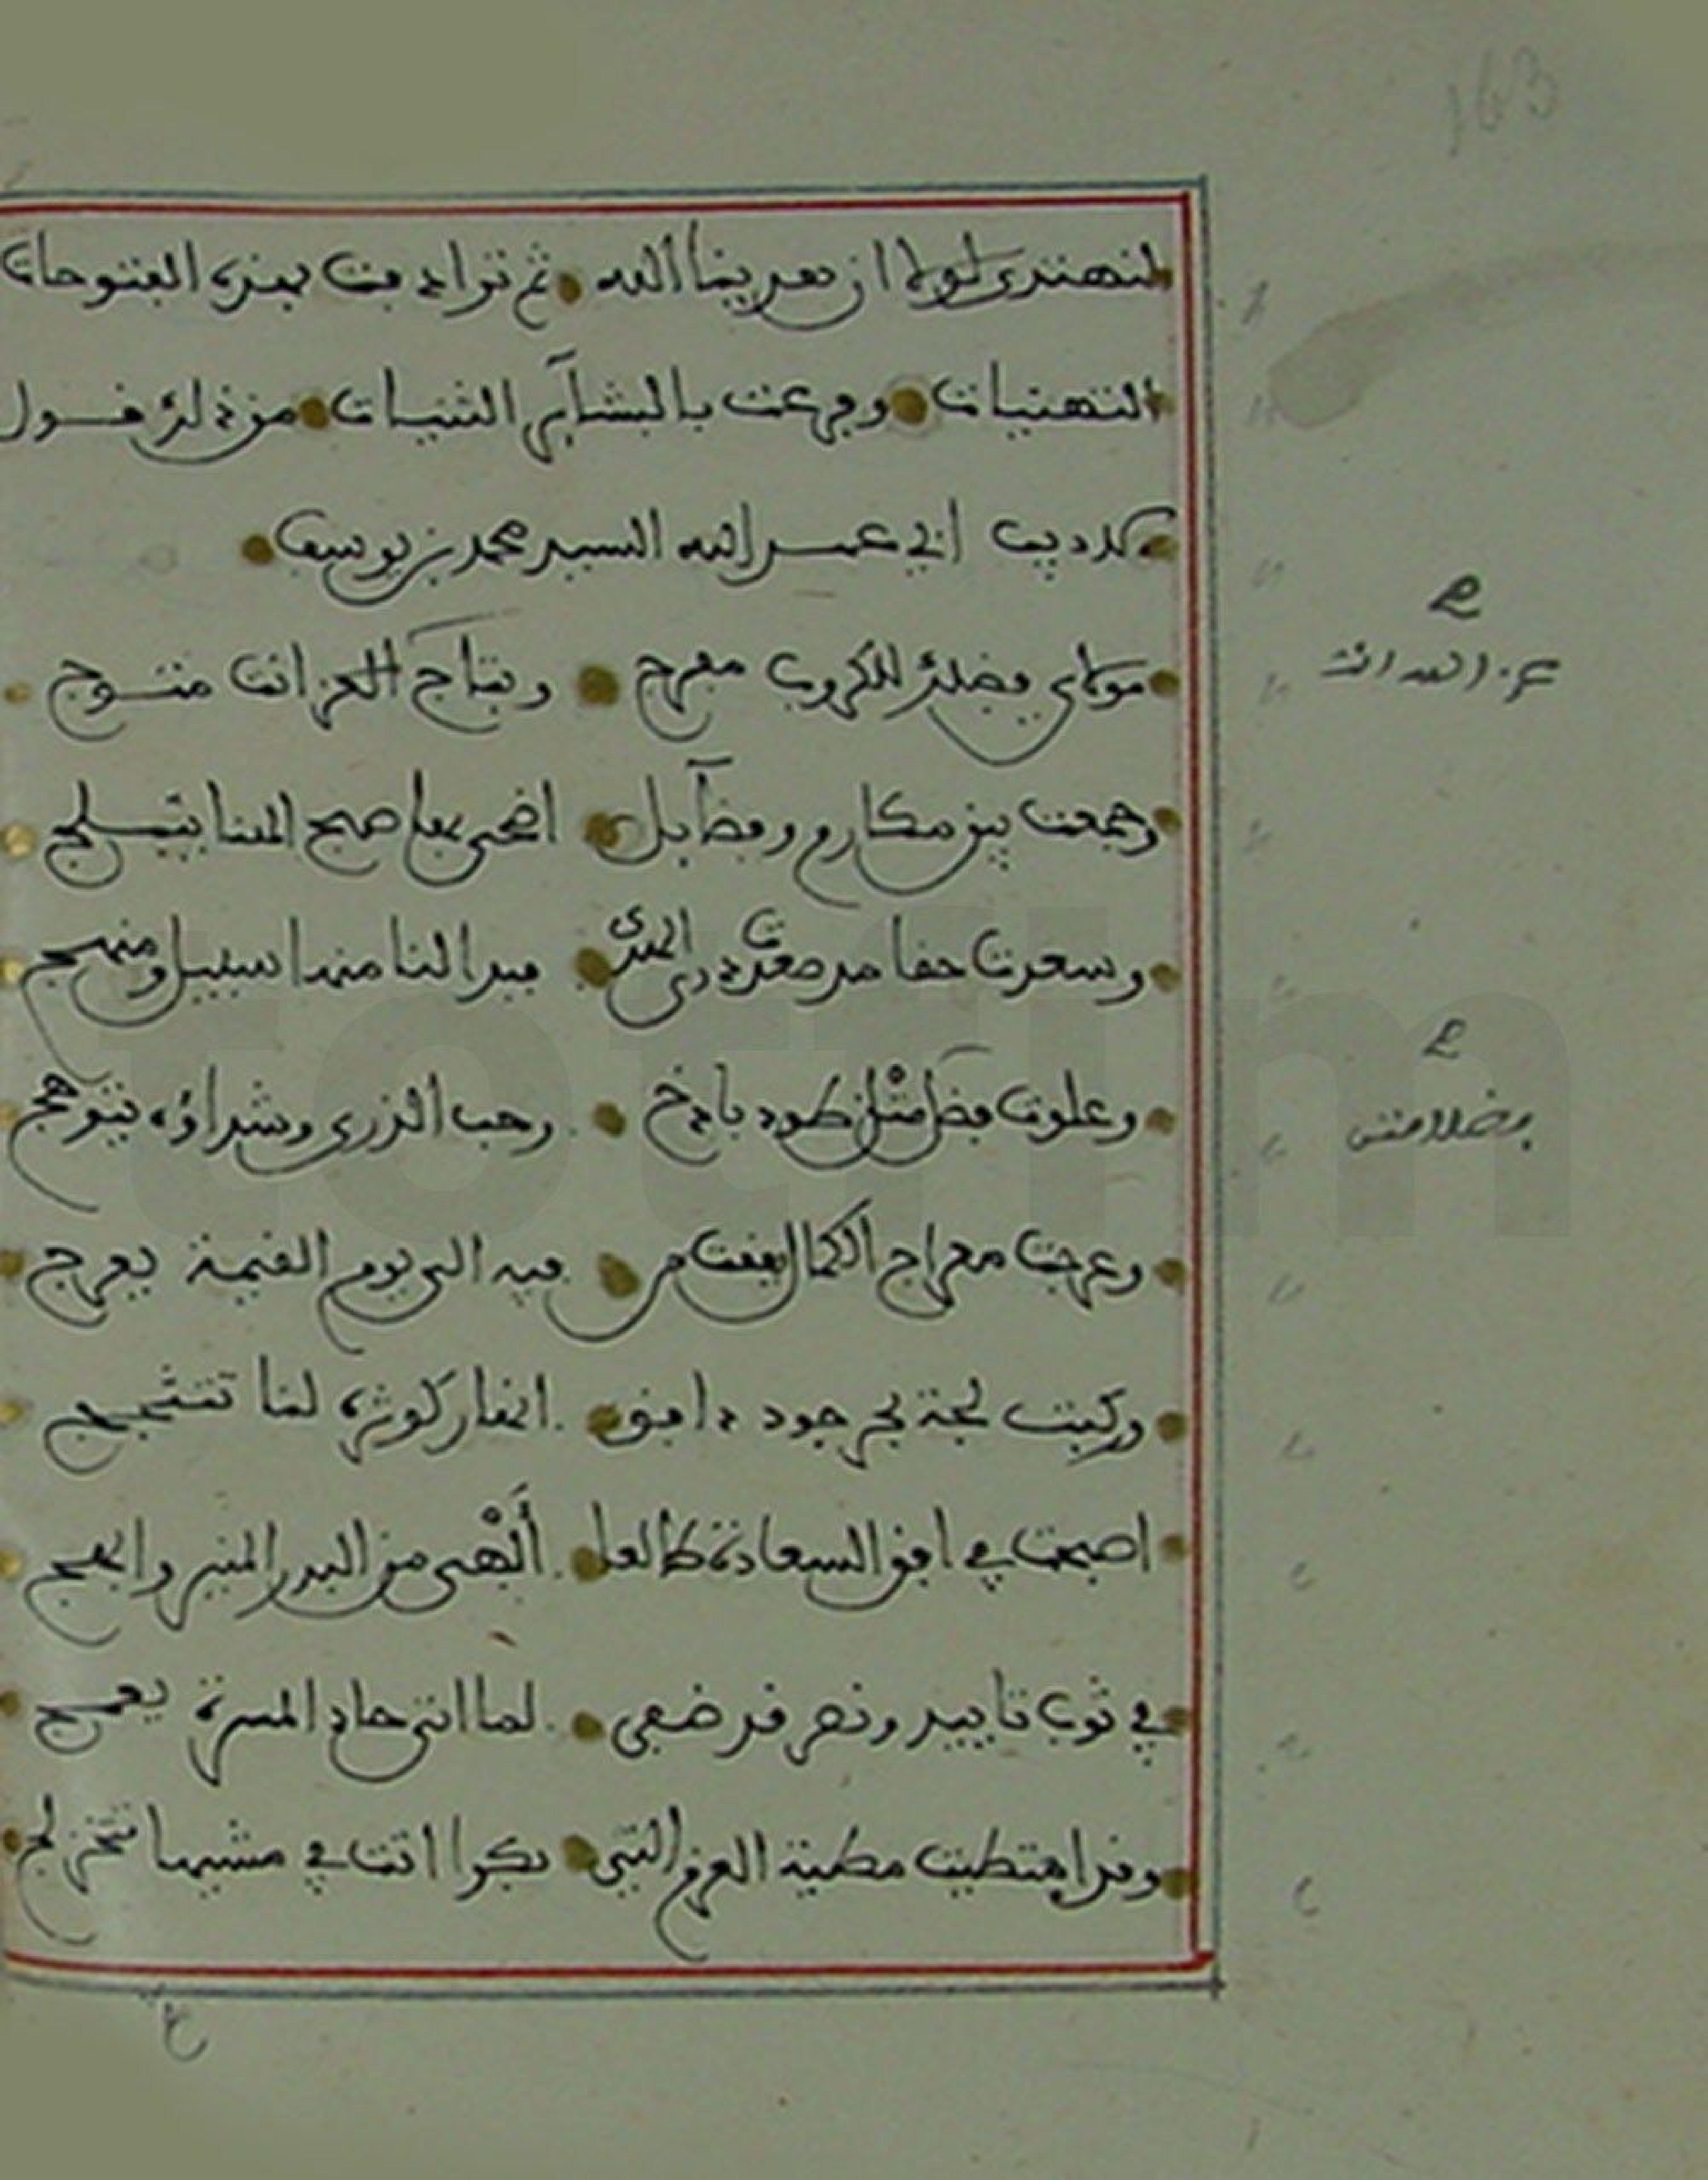 163
لنهتدي لولا ان هدينا الله ثم ترادفت بهذه الفتوحات
التهنيات وفرعت بالبشآئر الثنيات من ذلك قول
اديب ابي عبد الله السيد محمد بن يوسف
مولاي فضلك للكروب مفرج وبتاج العز انت متوج
عز الله انت
وجمعت بين مكارم وفضآيل اضحى بها صبح المنا يتبلج
وسعدت حقا مد صعدت ذرى الهدى فبدا لنا منها سبيل ومنهج
وعلوت فضل مثل طود باذخ رحب الذرى وشذاؤه يتوهج
بفضلا منتـ
وعرجت معراج الكمال بقيت من فيه الى يوم القيمة يعرج
وركبت لجة بحر جود دافق انهار كوثره لنا تتثجج
اصبحت في افق السعادة والعلا أبْهى من البدر المنير وابهج
في ثوب تاييد ونصر قد ضفى لما اتى حادي المسرة يهمج
وقد امتطيت مطية العز التي بكرا اتت في مشيها تتخزلج